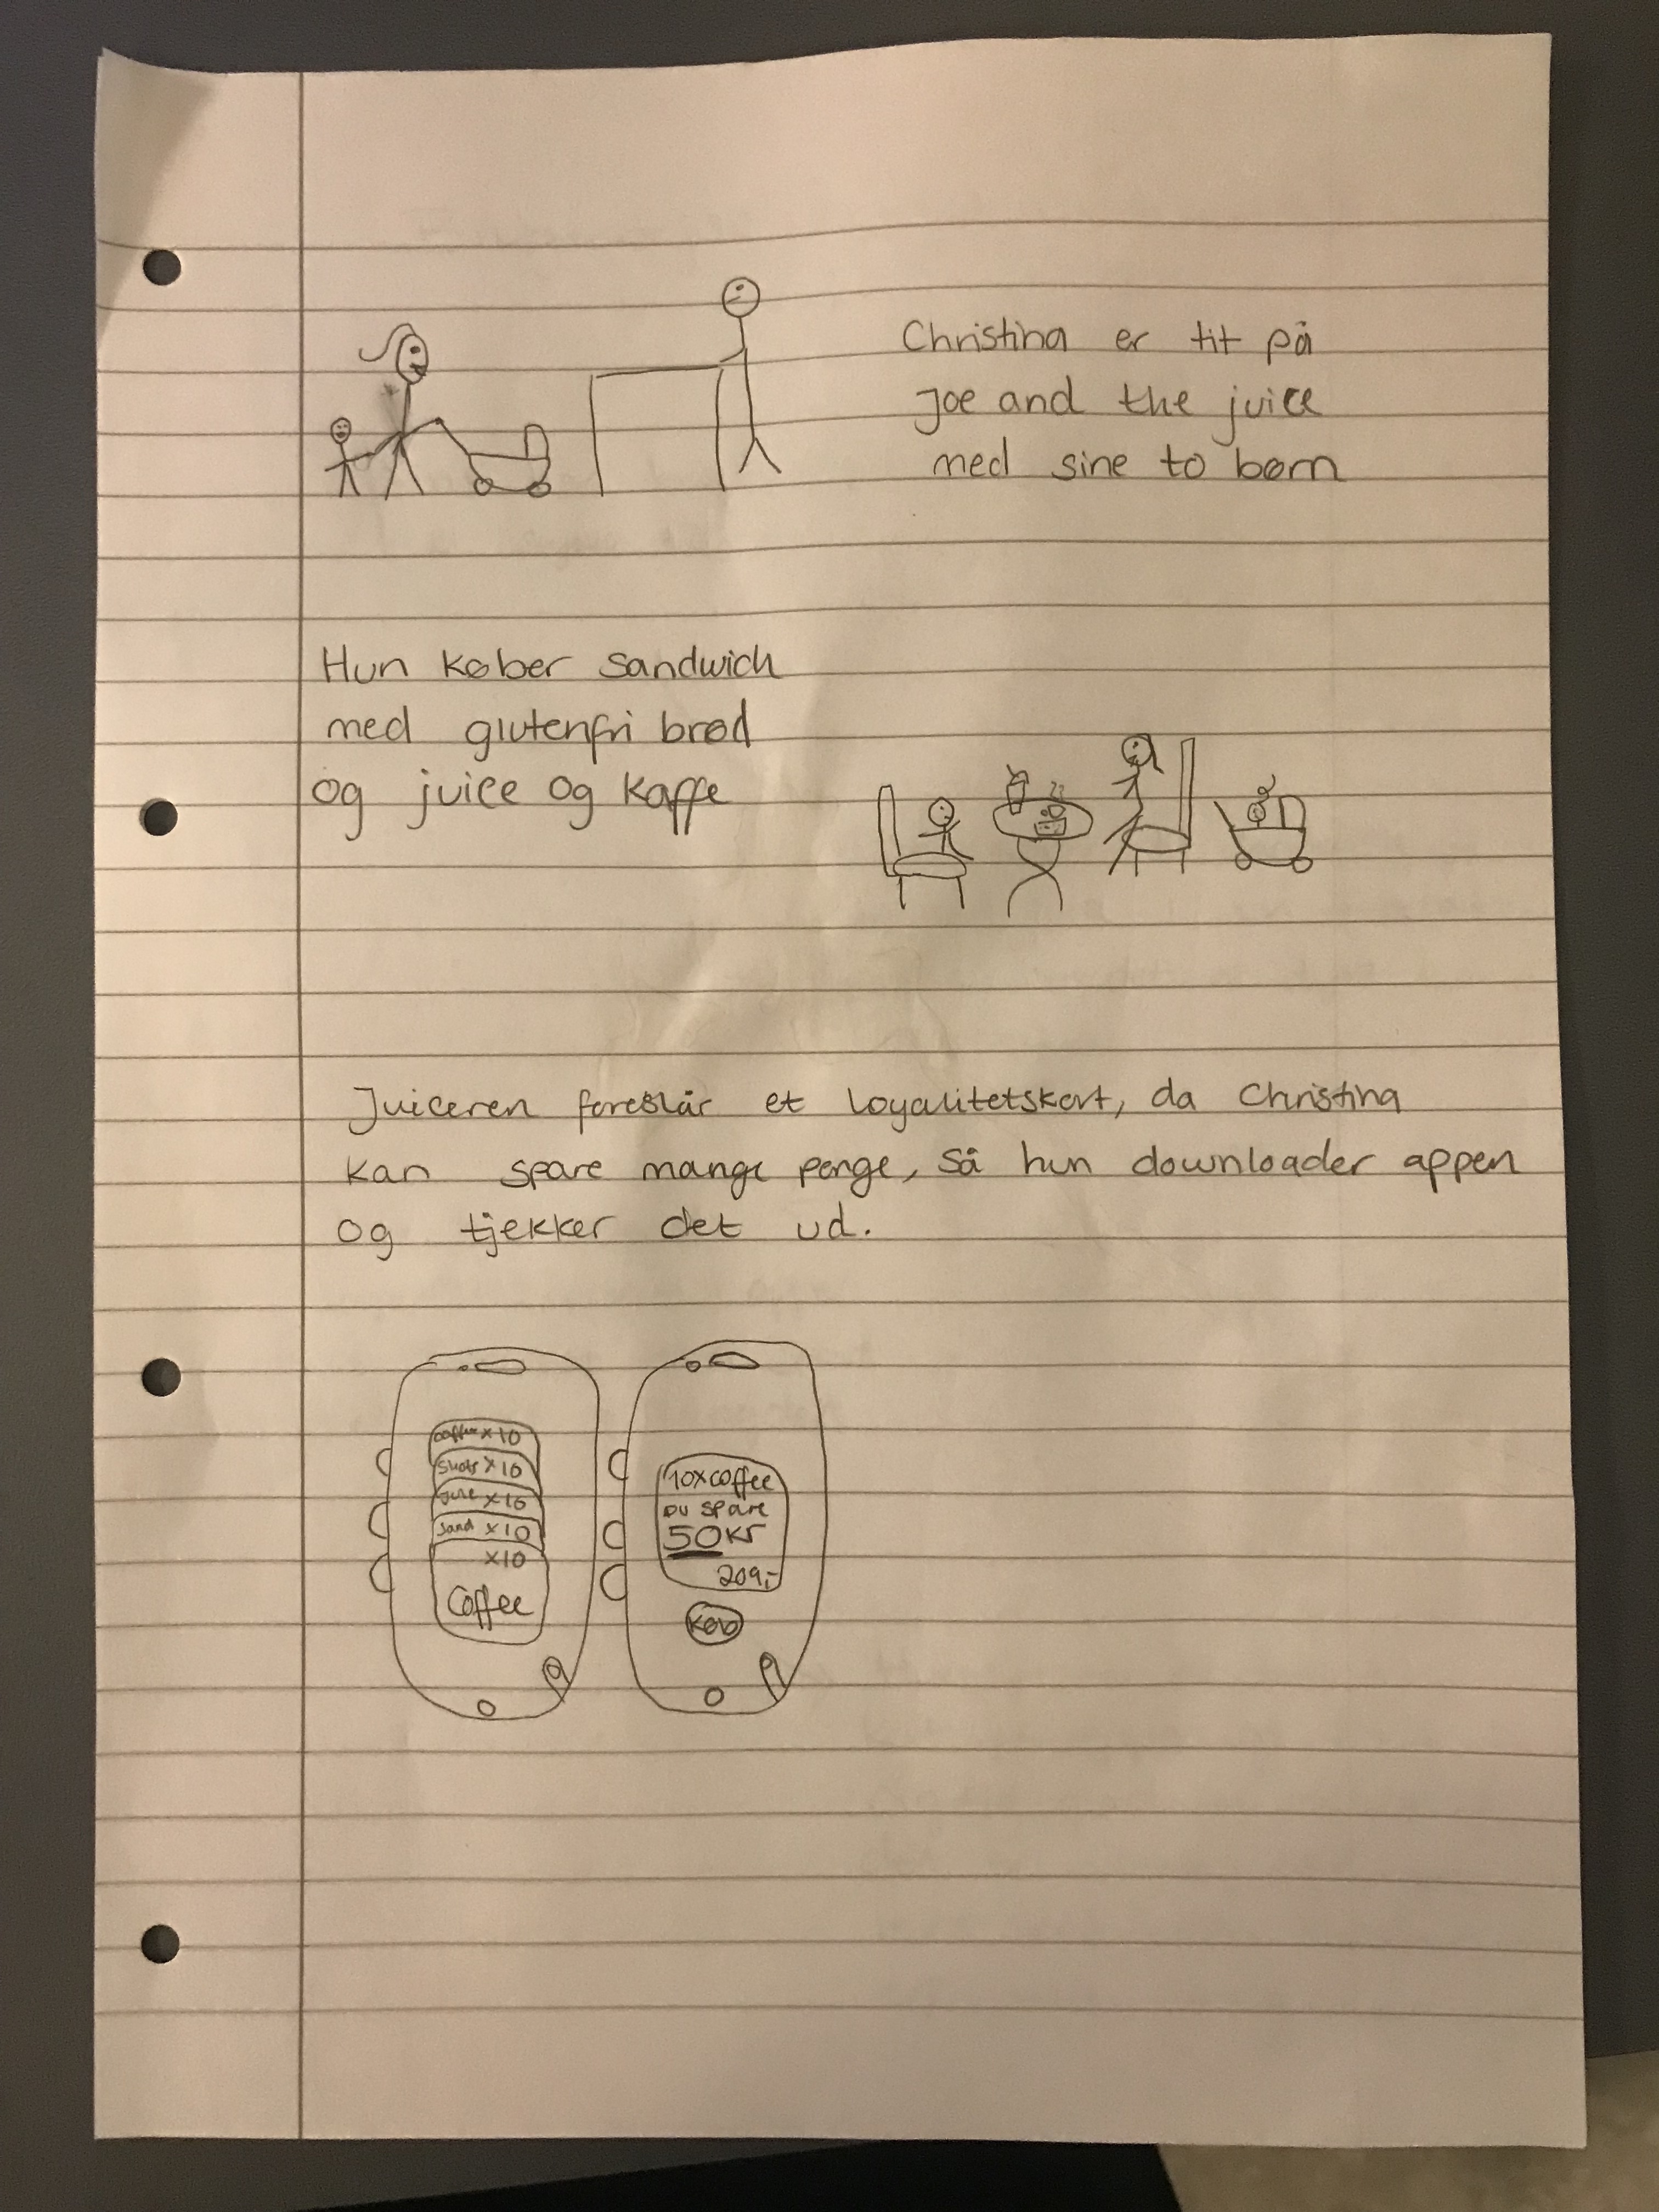 Christina er tit på
Joe and the juice
med sine to børn
Hun køber sandwich
med glutenfri brød
og juice og kaffe
Juiceren foreslår et loyalitetskort, da Christina
kan spare mange penge, så hun downloader appen
og tjekker det ud.
x10
shots x10
x10
sand x10
x10
Coffee
10xcoffee
Du spare
50kr
209,-
Køb